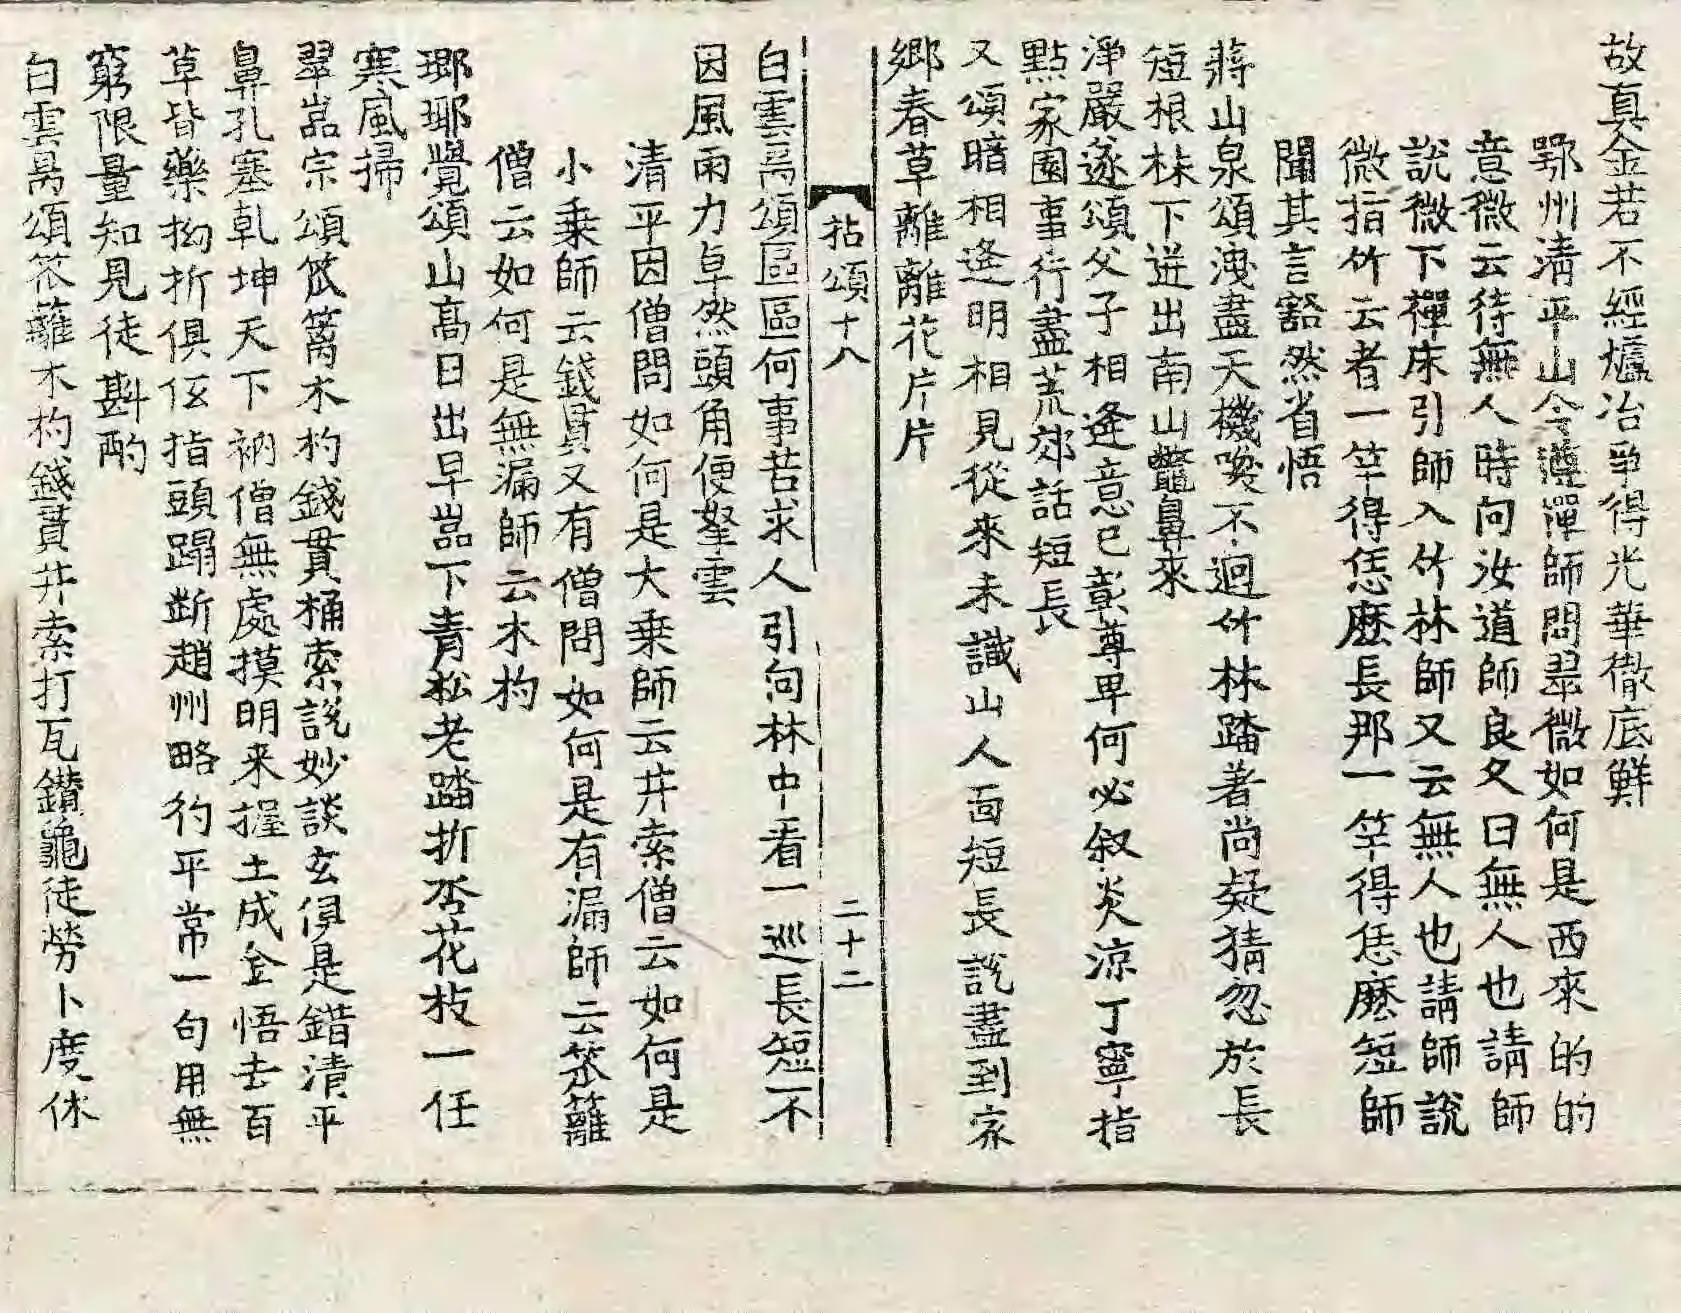 故真金若不經爐冶爭得光華徹底鮮
鄂州清平山令遵禪師問翠微如何是西來的的
意微云待無人時向汝道師良久曰無人也請師
說微下禪床引師入竹林師又云無人也請師說
微指竹云者一竿得恁麽長那一竿得恁麽短師
聞其言豁然省悟
蔣山泉頌洩盡天機喚不迴竹林踏著尚疑猜忽於長
短根株下迸出南山鼈鼻來
淨嚴遂頌父子相逢意已彰尊卑何必叙炎凉丁寧指
點家園事行盡荒郊話短長
又頌暗相逢明相見從來未識山人面短長說盡到家
鄉春草離離花片片
拈頌十八 二十二
白雲昺頌區區何事苦求人引向林中看一巡長短不
因風雨力卓然頭角便拏雲
清平因僧問如何是大乘師云井索僧云如何是
小乘師云錢貫又有僧問如何是有漏師云笊籬
僧云如何是無漏師云木杓
瑯瑘覺頌山高日出早嵓下青松老踏折杏花枝一任
寒風掃
翠嵓宗頌笊篱木杓錢貫桶索說妙談玄俱是錯清平
鼻孔塞乾坤天下衲僧無處摸明來握土成金悟去百
草皆藥拗折俱伍指頭蹋断趙州略彴平常一句用無
窮限量知見徒斟酌
白雲昺頌笊籬木杓錢貫井索打瓦鑽龜徒勞卜度休